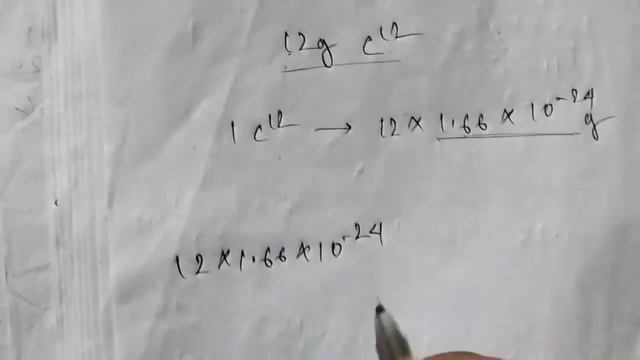 12g C¹²
1 C¹² → 12 × 1.66 × 10⁻²⁴ g
12 × 1.66 × 10⁻²⁴